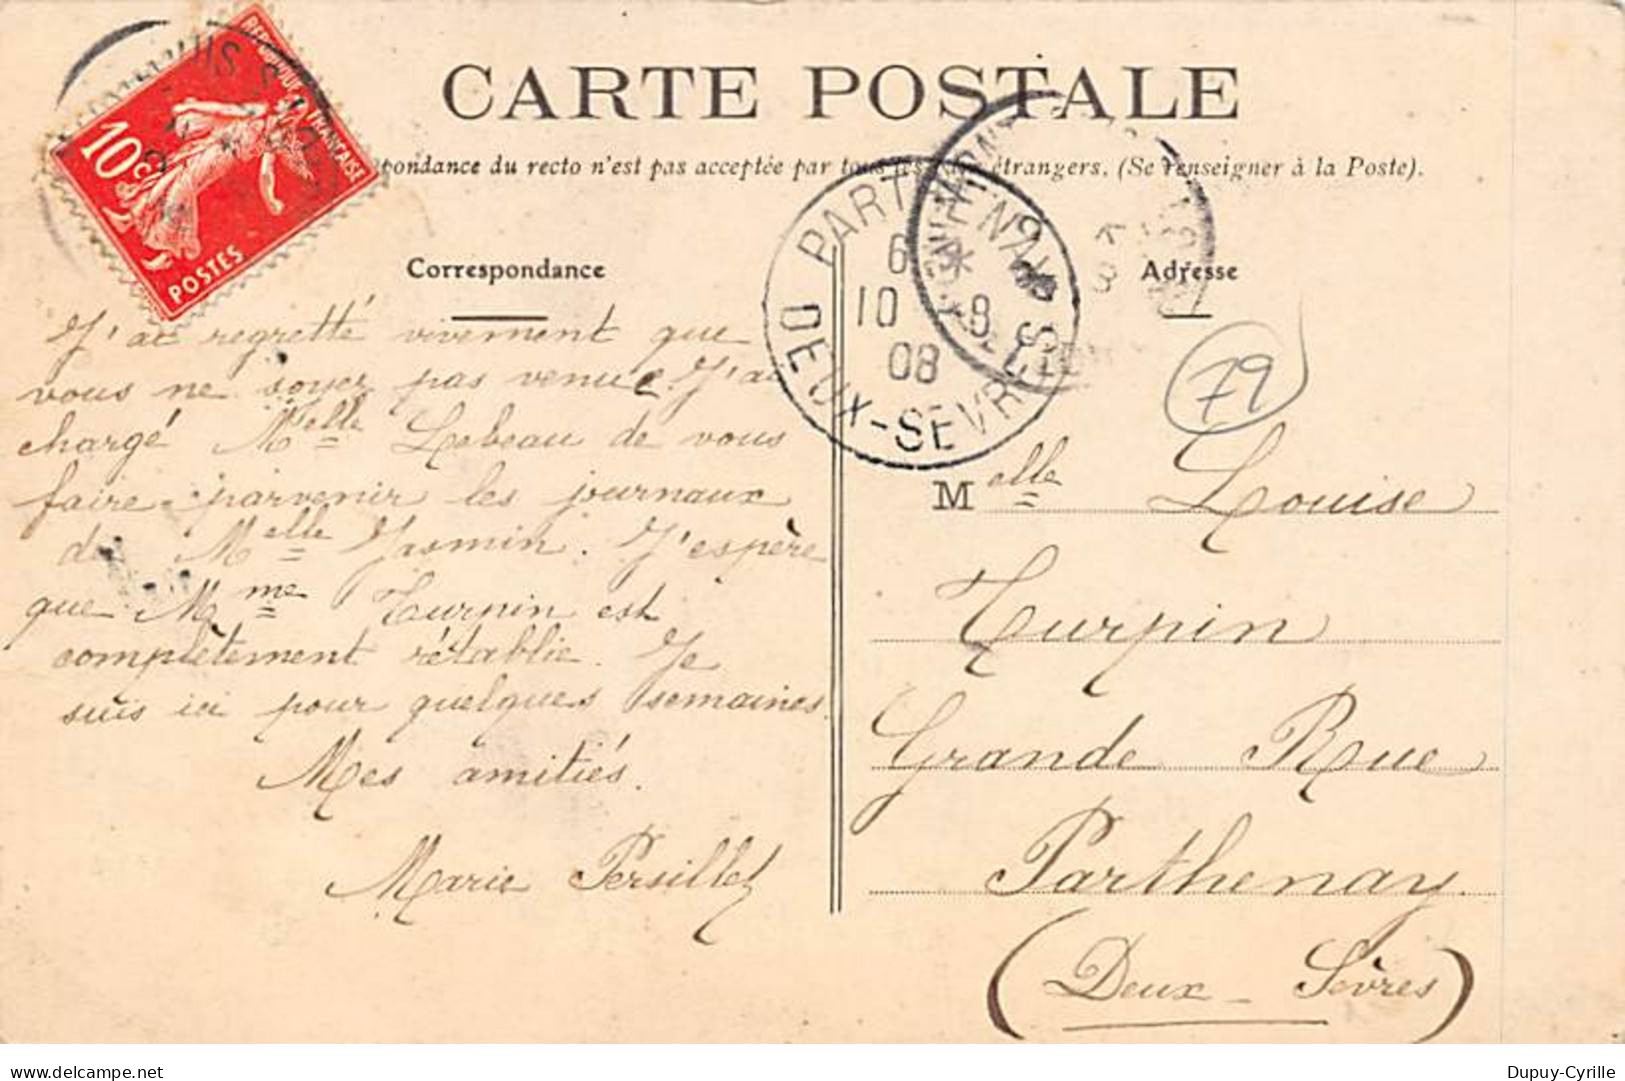 CARTE POSTALE
pondance du recto n'est pas acceptée par tous les étrangers. (Se renseigner à la Poste).
REPUBLIQUE FRANÇAISE
10c
POSTES
PARTHENAY
6 *
10 - 8
08
DEUX-SEVRES
Correspondance
J'ai regretté vivement que
vous ne soyez pas venue. J'ai
chargé Melle Lebeau de vous
faire parvenir les journaux
de Melle Jasmin. J'espère
que Mme Turpin est
complètement rétablie. Je
suis ici pour quelques semaines.
Mes amitiés.
Marie Persillet
Adresse
79
Melle Louise
Turpin
Grande Rue
Parthenay.
(Deux-Sèvres)
delcampe.net
Dupuy-Cyrille